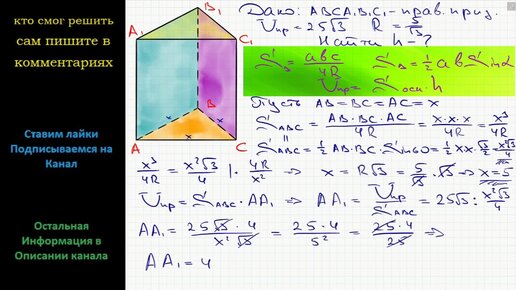 кто смог решить
сам пишите в
комментариях
Ставим лайки
Подписываемся на
Канал
Остальная
Информация в
Описании канала
B₁
A₁
C₁
B
x x
A x C
Дано: ABCA₁B₁C₁ - прав. приз.
Vпр = 25√3 R = 5/√3
Найти h - ?
S△ = abc/4R S△ = 1/2 ab Sinα
Vпр = Sосн · h
Пусть AB = BC = AC = x
S△ABC = AB·BC·AC/4R = x·x·x/4R = x³/4R
S△ABC = 1/2 AB·AC·Sin60 = 1/2 x·x·√3/2 = x²√3/4
x³/4R = x²√3/4 | · 4R/x² ⇒ x = R√3 = 5/√3 · √3 ⇒ x = 5
Vпр = S△ABC · AA₁ ⇒ AA₁ = V/S△ABC = 25√3 : x²√3/4
AA₁ = 25√3·4/x²√3 = 25·4/5² = 25·4/25 ⇒
AA₁ = 4